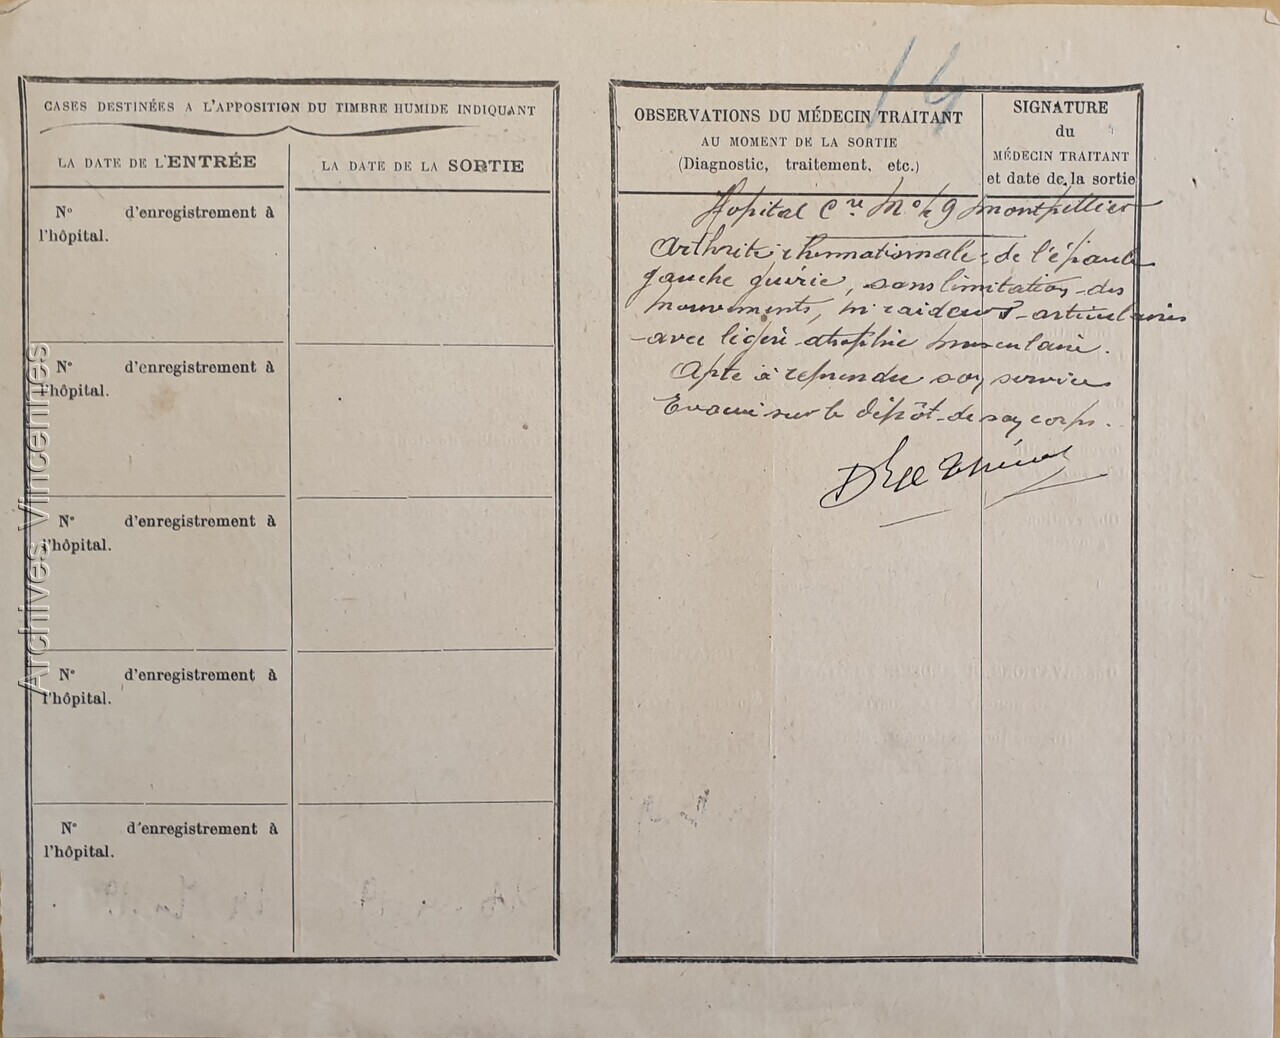 14
CASES DESTINÉES A L'APPOSITION DU TIMBRE HUMIDE INDIQUANT
LA DATE DE L'ENTRÉE
LA DATE DE LA SORTIE
N° d'enregistrement à
l'hôpital.
N° d'enregistrement à
l'hôpital.
N° d'enregistrement à
l'hôpital.
N° d'enregistrement à
l'hôpital.
N° d'enregistrement à
l'hôpital.
OBSERVATIONS DU MÉDECIN TRAITANT
AU MOMENT DE LA SORTIE
(Diagnostic, traitement, etc.)
SIGNATURE
du
MÉDECIN TRAITANT
et date de la sortie
Hopital Cre Montpellier
Arthrite rhumatismale de l'épaule
gauche guérie, sans limitation des
mouvements, ni raideurs articulaires
avec légère atrophie musculaire.
Apte à reprendre son service
Evacué sur le dépôt de son corps.
Archives Vincennes